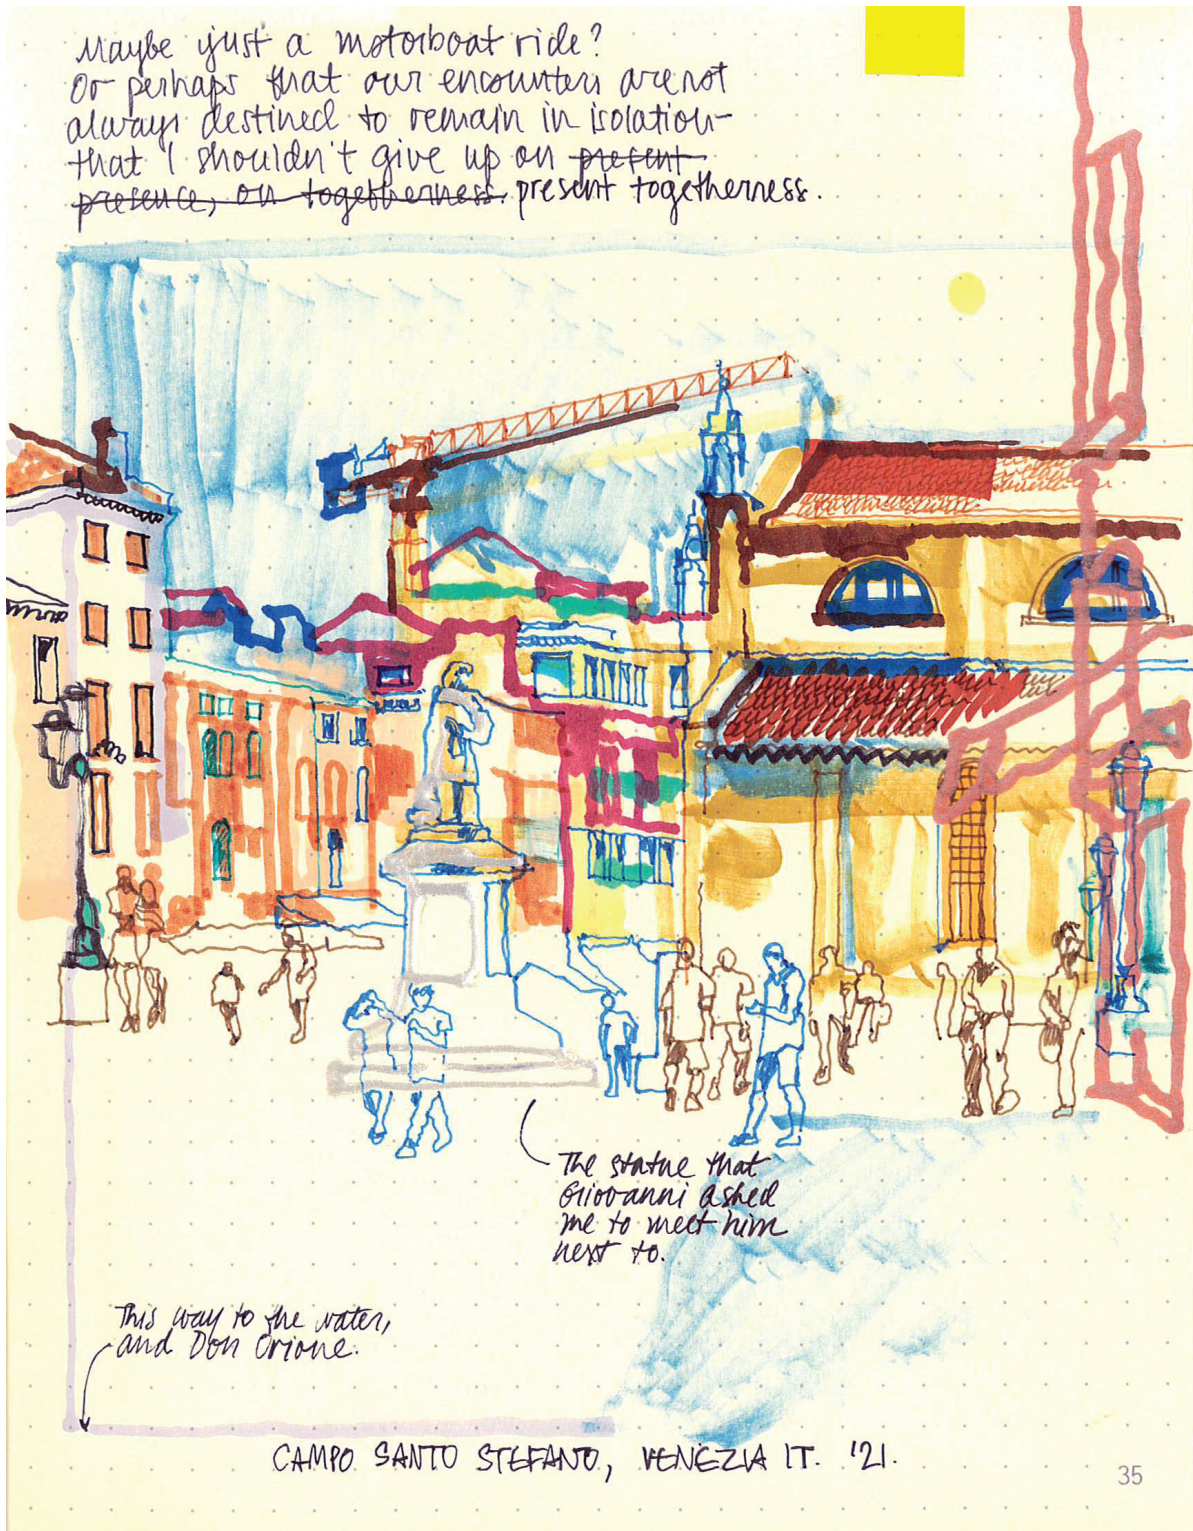 Maybe just a motorboat ride?
Or perhaps that our encounters are not
always destined to remain in isolation–
that I shouldn't give up on present
presence, on togetherness. present togetherness.
The statue that
Giovanni asked
me to meet him
next to.
This way to the water,
and Don Orione.
CAMPO SANTO STEFANO, VENEZIA IT. '21.
35